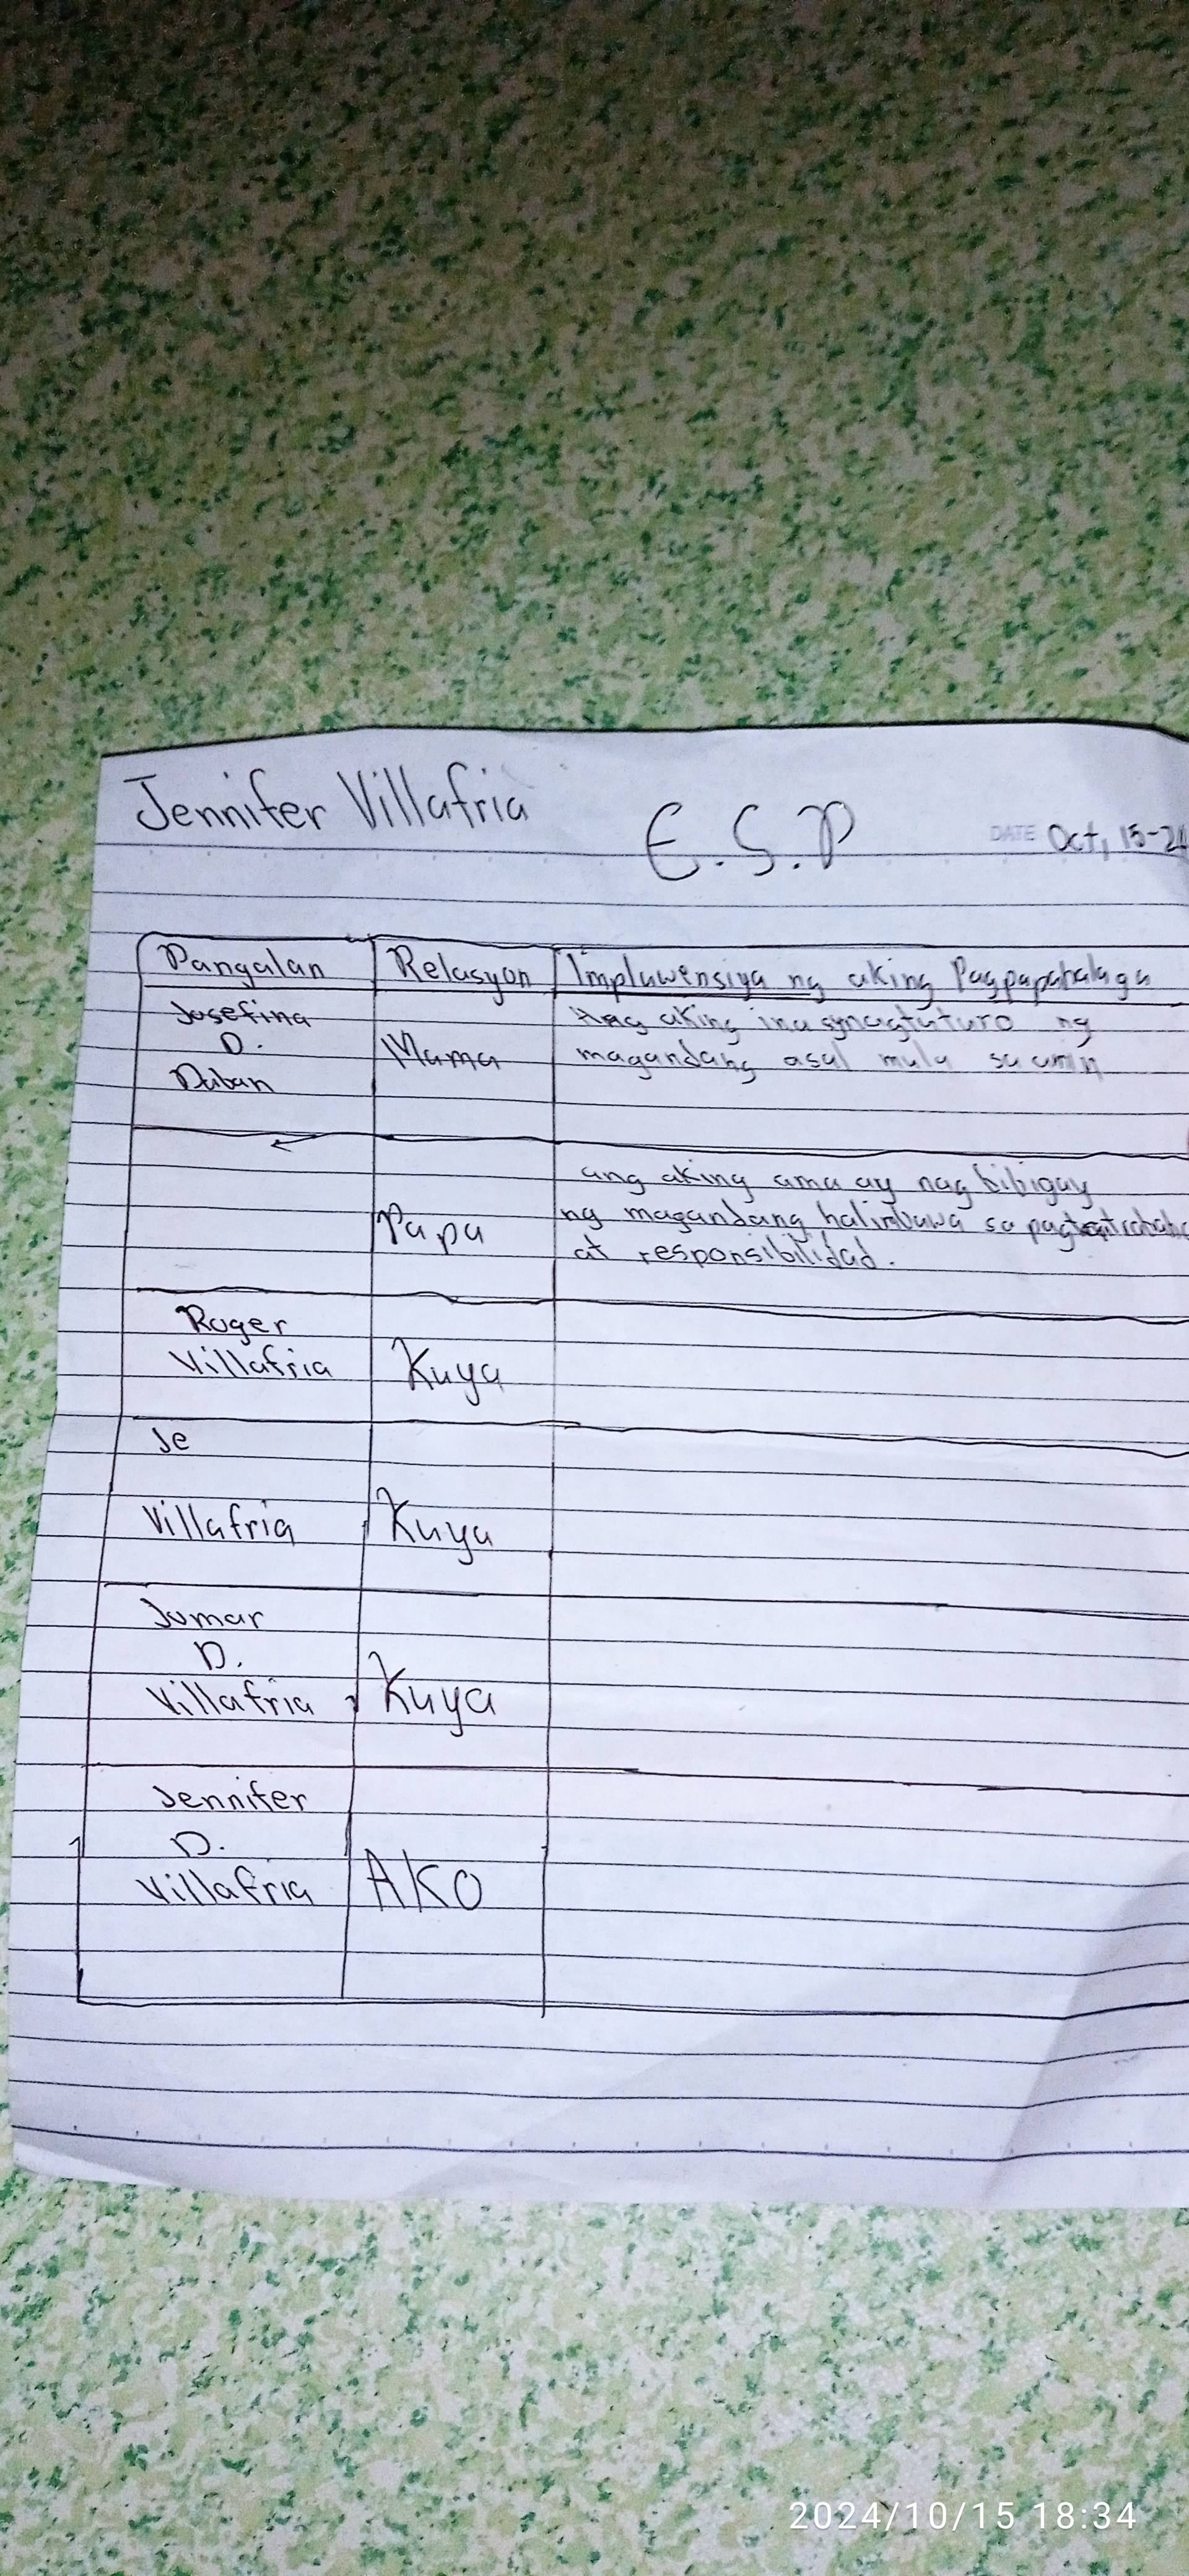 Jennifer Villafria
E.S.P
DATE Oct, 15-24
Pangalan Relasyon Impluwensiya ng aking Pagpapahalaga
Josefina
D.
Duban
Mama
Ang aking ina
ng
magandang asal mula sa amin
Papa
ang aking ama ay nag bibigay
ng magandang halimbawa sa
at responsibilidad.
Roger
Villafria
Kuya
Je
Villafria
Kuya
Jomar
D.
Villafria
Kuya
Jennifer
D.
Villafria
AKO
2024/10/15 18:34